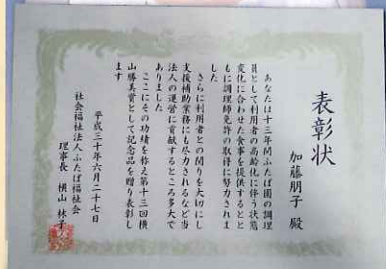 表彰状
加藤朋子 殿
あなたは十三年間ふたば園の調理
員として利用者の高齢化に伴う状態
変化に合わせた食事を提供するとと
もに調理師免許の取得に努力されま
した
さらに利用者との関りを大切にし
支援補助業務にも尽力されるなど当
法人の運営に貢献するところ多大で
ありました
ここにその功績を称え第十三回横
山勝美賞として記念品を贈り表彰し
ます
平成三十年六月二十七日
社会福祉法人ふたば福祉会
理事長 横山 林子